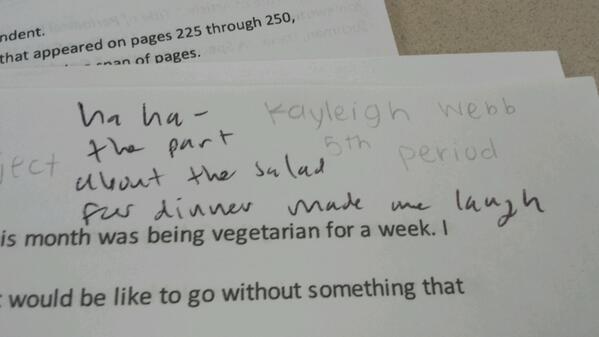 ndent.
that appeared on pages 225 through 250,
span of pages.
ha ha - Kayleigh Webb
the part 5th period
ject
about the salad
for dinner made me laugh
is month was being vegetarian for a week. I
would be like to go without something that